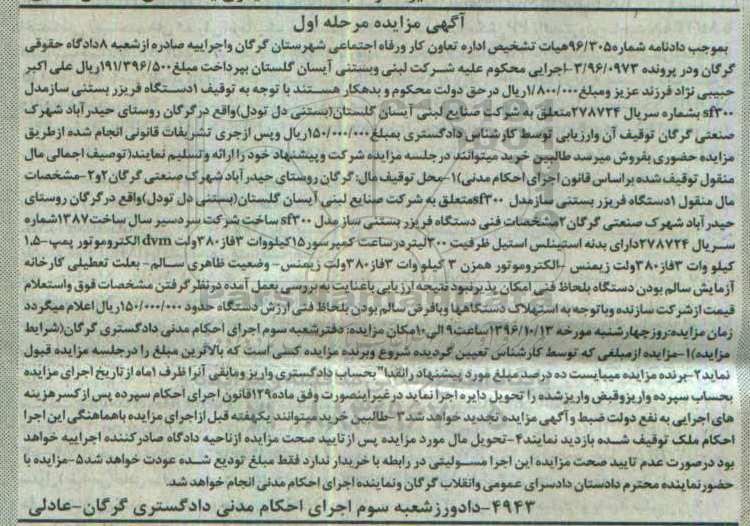 آگهی مزایده مرحله اول
بموجب دادنامه شماره۹۶/۳۰۵هیات تشخیص اداره تعاون کار ورفاه اجتماعی شهرستان گرگان واجراییه صادره ازشعبه ۸دادگاه حقوقی
گرگان ودر پرونده ۳/۹۶/۰۹۷۳-اجرایی محکوم علیه شرکت لبنی وبستنی آیسان گلستان بپرداخت مبلغ۱۹۱/۳۹۶/۵۰۰ریال علی اکبر
حبیبی نژاد فرزند عزیز ومبلغ۱/۸۰۰/۰۰۰ریال درحق دولت محکوم و بدهکار هستند با توجه به توقیف ۱دستگاه فریزر بستنی سازمدل
sf۳۰۰ بشماره سریال ۲۷۸۷۲۴متعلق به شرکت صنایع لبنی آیسان گلستان(بستنی دل تودل)واقع درگرگان روستای حیدرآباد شهرک
صنعتی گرگان توقیف آن وارزیابی توسط کارشناس دادگستری بمبلغ۱۵۰/۰۰۰/۰۰۰ریال وپس ازجری تشریفات قانونی انجام شده ازطریق
مزایده حضوری بفروش میرسد طالبین خرید میتوانند درجلسه مزایده شرکت وپیشنهاد خود را ارائه وتسلیم نمایند(توصیف اجمالی مال
منقول توقیف شده براساس قانون اجرای احکام مدنی)۱-محل توقیف مال: گرگان روستای حیدرآباد شهرک صنعتی گرگان۲و۲-مشخصات
مال منقول ۱دستگاه فریزر بستنی سازمدل sf۳۰۰متعلق به شرکت صنایع لبنی آیسان گلستان(بستنی دل تودل)واقع درگرگان روستای
حیدرآباد شهرک صنعتی گرگان۲مشخصات فنی دستگاه فریزر بستنی ساز مدل sf۳۰۰ ساخت شرکت سردسیر سال ساخت۱۳۸۷شماره
سریال ۲۷۸۷۲۴دارای بدنه استینلس استیل ظرفیت ۳۰۰لیتردرساعت کمپرسور۱۵کیلووات ۳فاز۳۸۰ولت dvm الکتروموتور پمپ-۱.۵
کیلو وات ۳فاز۳۸۰ولت زیمنس -الکتروموتور همزن ۳ کیلو وات ۳فاز۳۸۰ولت زیمنس- وضعیت ظاهری سالم- بعلت تعطیلی کارخانه
آزمایش سالم بودن دستگاه بلحاظ فنی امکان پذیرنبود نتیجه ارزیابی باعنایت به بررسی بعمل آمده درنظرگرفتن مشخصات فوق واستعلام
قیمت ازشرکت سازنده وباتوجه به استهلاک دستگاهها وبافرض سالم بودن بلحاظ فنی ارزش دستگاه حدود ۱۵۰/۰۰۰/۰۰۰ریال اعلام میگردد
زمان مزایده:روزچهارشنبه مورخه ۱۳۹۶/۱۰/۱۳ساعت۹الی۱۰مکان مزایده: دفترشعبه سوم اجرای احکام مدنی دادگستری گرگان(شرایط
مزایده)۱-مزایده ازمبلغی که توسط کارشناس تعیین گردیده شروع وبرنده مزایده کسی است که بالاترین مبلغ را درجلسه مزایده قبول
نماید۲-برنده مزایده میبایست ده درصد مبلغ مورد پیشنهاد رانقدا" بحساب دادگستری واریز ومابقی آنرا ظرف ۱ماه ازتاریخ اجرای مزایده
بحساب سپرده واریزوقبض واریزشده را تحویل دایره اجرا نماید درغیراینصورت وفق ماده۱۲۹قانون اجرای احکام سپرده پس ازکسرهزینه
های اجرایی به نفع دولت ضبط وآگهی مزایده تجدید خواهد شد۳-طالبین خرید میتوانند یکهفته قبل ازاجرای مزایده باهماهنگی این اجرا
احکام ملک توقیف شده بازدید نمایند۴-تحویل مال مورد مزایده پس ازتایید صحت مزایده ازناحیه دادگاه صادرکننده اجراییه خواهد
بود درصورت عدم تایید صحت مزایده این اجرا مسولیتی در رابطه با خریدار ندارد فقط مبلغ تودیع شده عودت خواهد شد۵-مزایده با
حضورنماینده محترم دادستان دادسرای عمومی وانقلاب گرگان ونماینده اجرای احکام مدنی انجام خواهد شد.
۴۹۴۳-دادورزشعبه سوم اجرای احکام مدنی دادگستری گرگان-عادلی